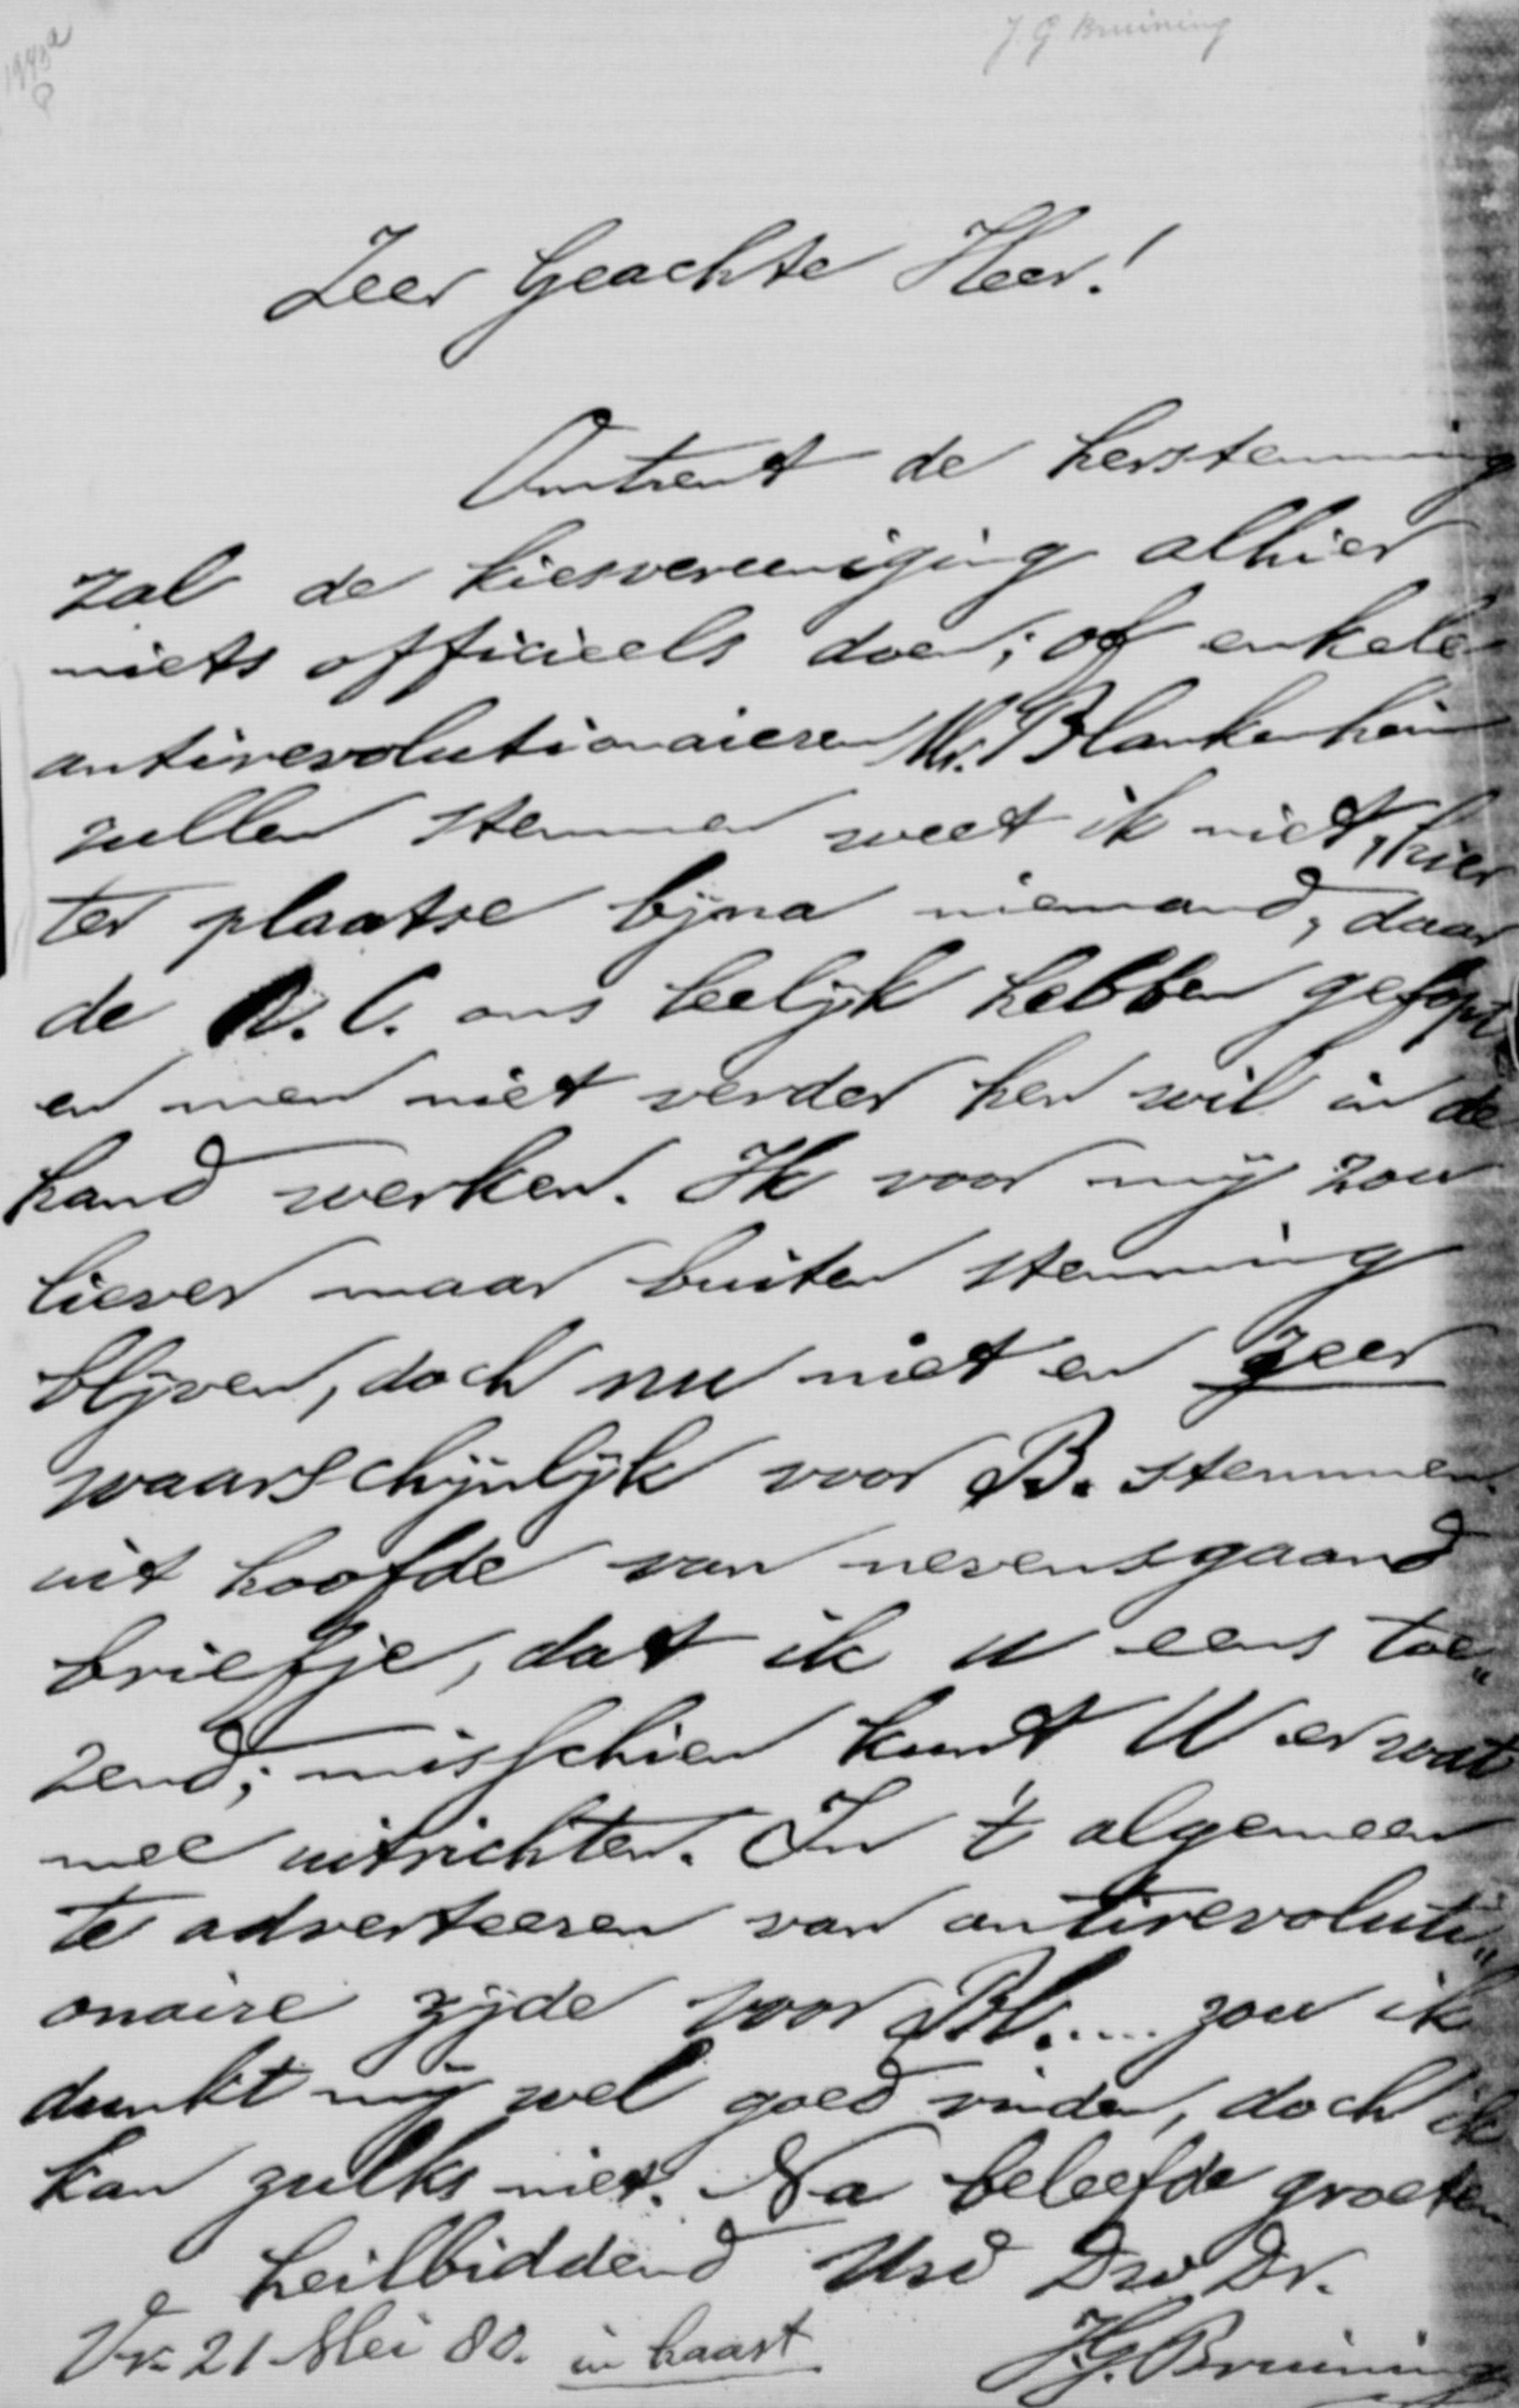 J G Bruining
Zeer Geachte Heer!
Omtrent de herstemming
zal de kiesvereeniging alhier
niets officieels doen; of enkele
antirevolutionairen Mr. Blankenheim
zullen stemmen weet ik niet, hier
ter plaatse bijna niemand, daar
de R.C. ons leelijk hebben gefopt
en men niet verder hen wil in de
hand werken. Ik voor mij zou
liever maar buiten stemming
blijven, doch nu niet en zeer
waarschijnlijk voor B. stemmen.
uit hoofde van nevensgaand
briefje, dat ik U eens toe„
zend; misschien kunt U er wat
mee uitrichten. In 't algemeen
te adverteeren van antirevoluti„
onaire zijde voor Bl..... zou ik
dunkt mij wel goed vinden, doch ik
kan zulks niet. Na beleefde groeten
heilbiddend Uwd Dw Dr.
Vr. 21 Mei 80. in haast J.G. Bruining